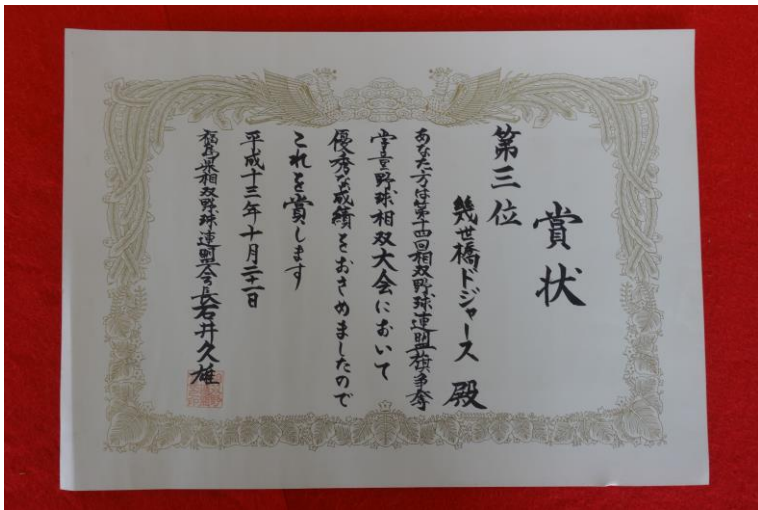 賞状
第三位
幾世橋ドジャース 殿
あなた方は第十四回相双野球連盟旗争奪
学童野球相双大会において
優秀な成績をおさめましたので
これを賞します
平成十三年十月二十一日
福島県相双野球連盟会長 石井久雄